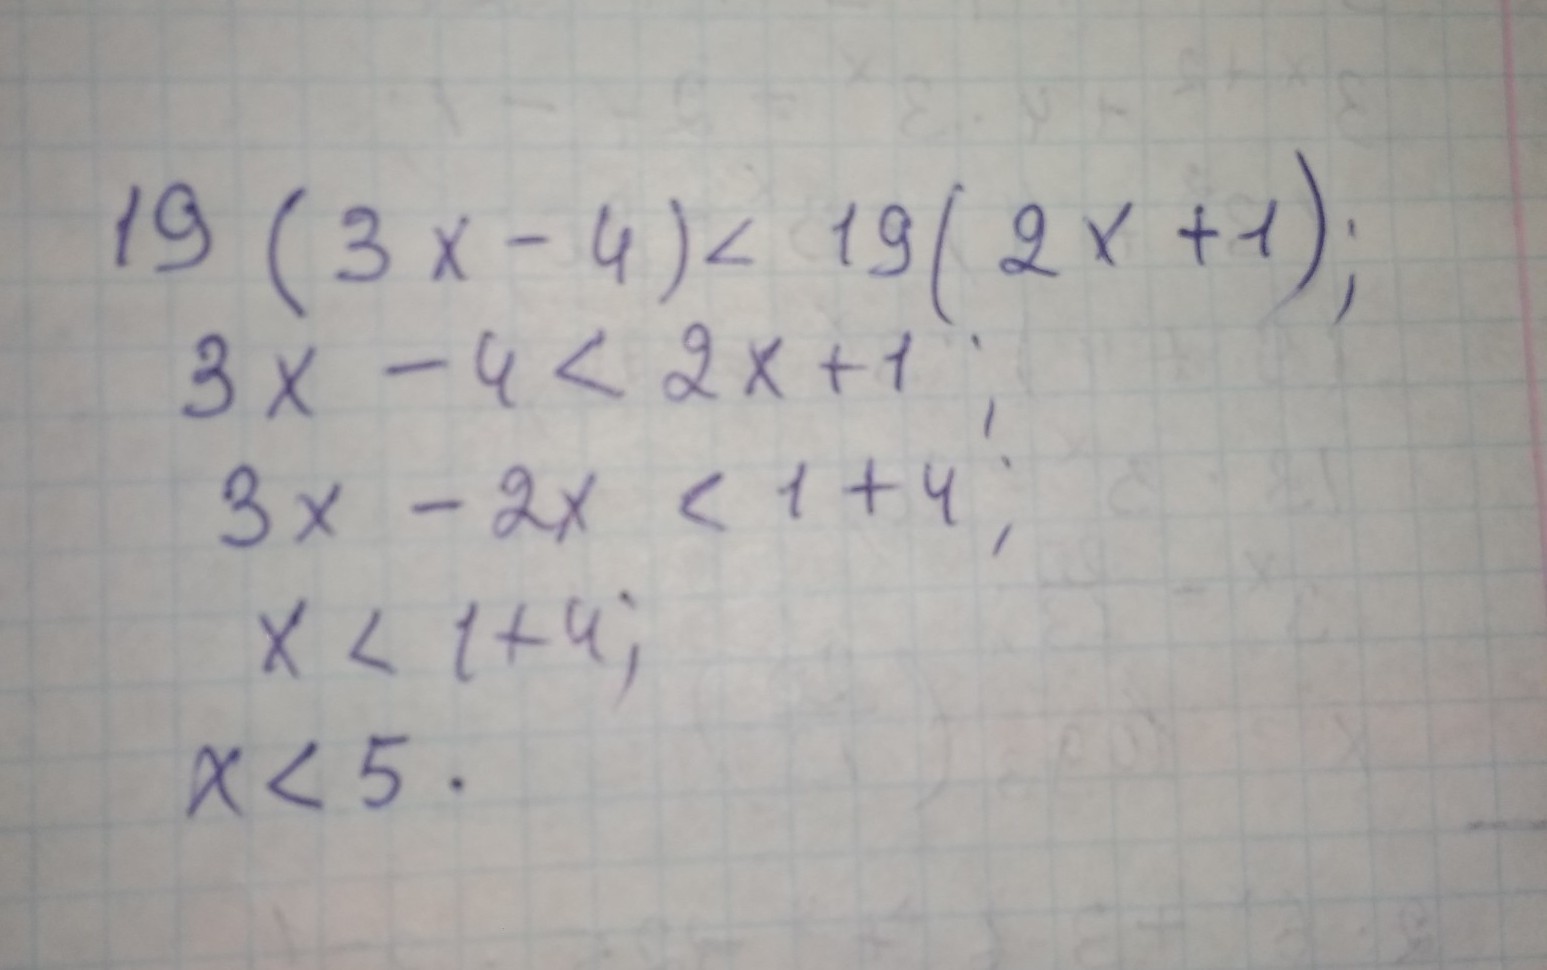 19 (3x - 4) < 19(2x + 1);
3x - 4 < 2x + 1;
3x - 2x < 1 + 4;
x < 1 + 4;
x < 5.